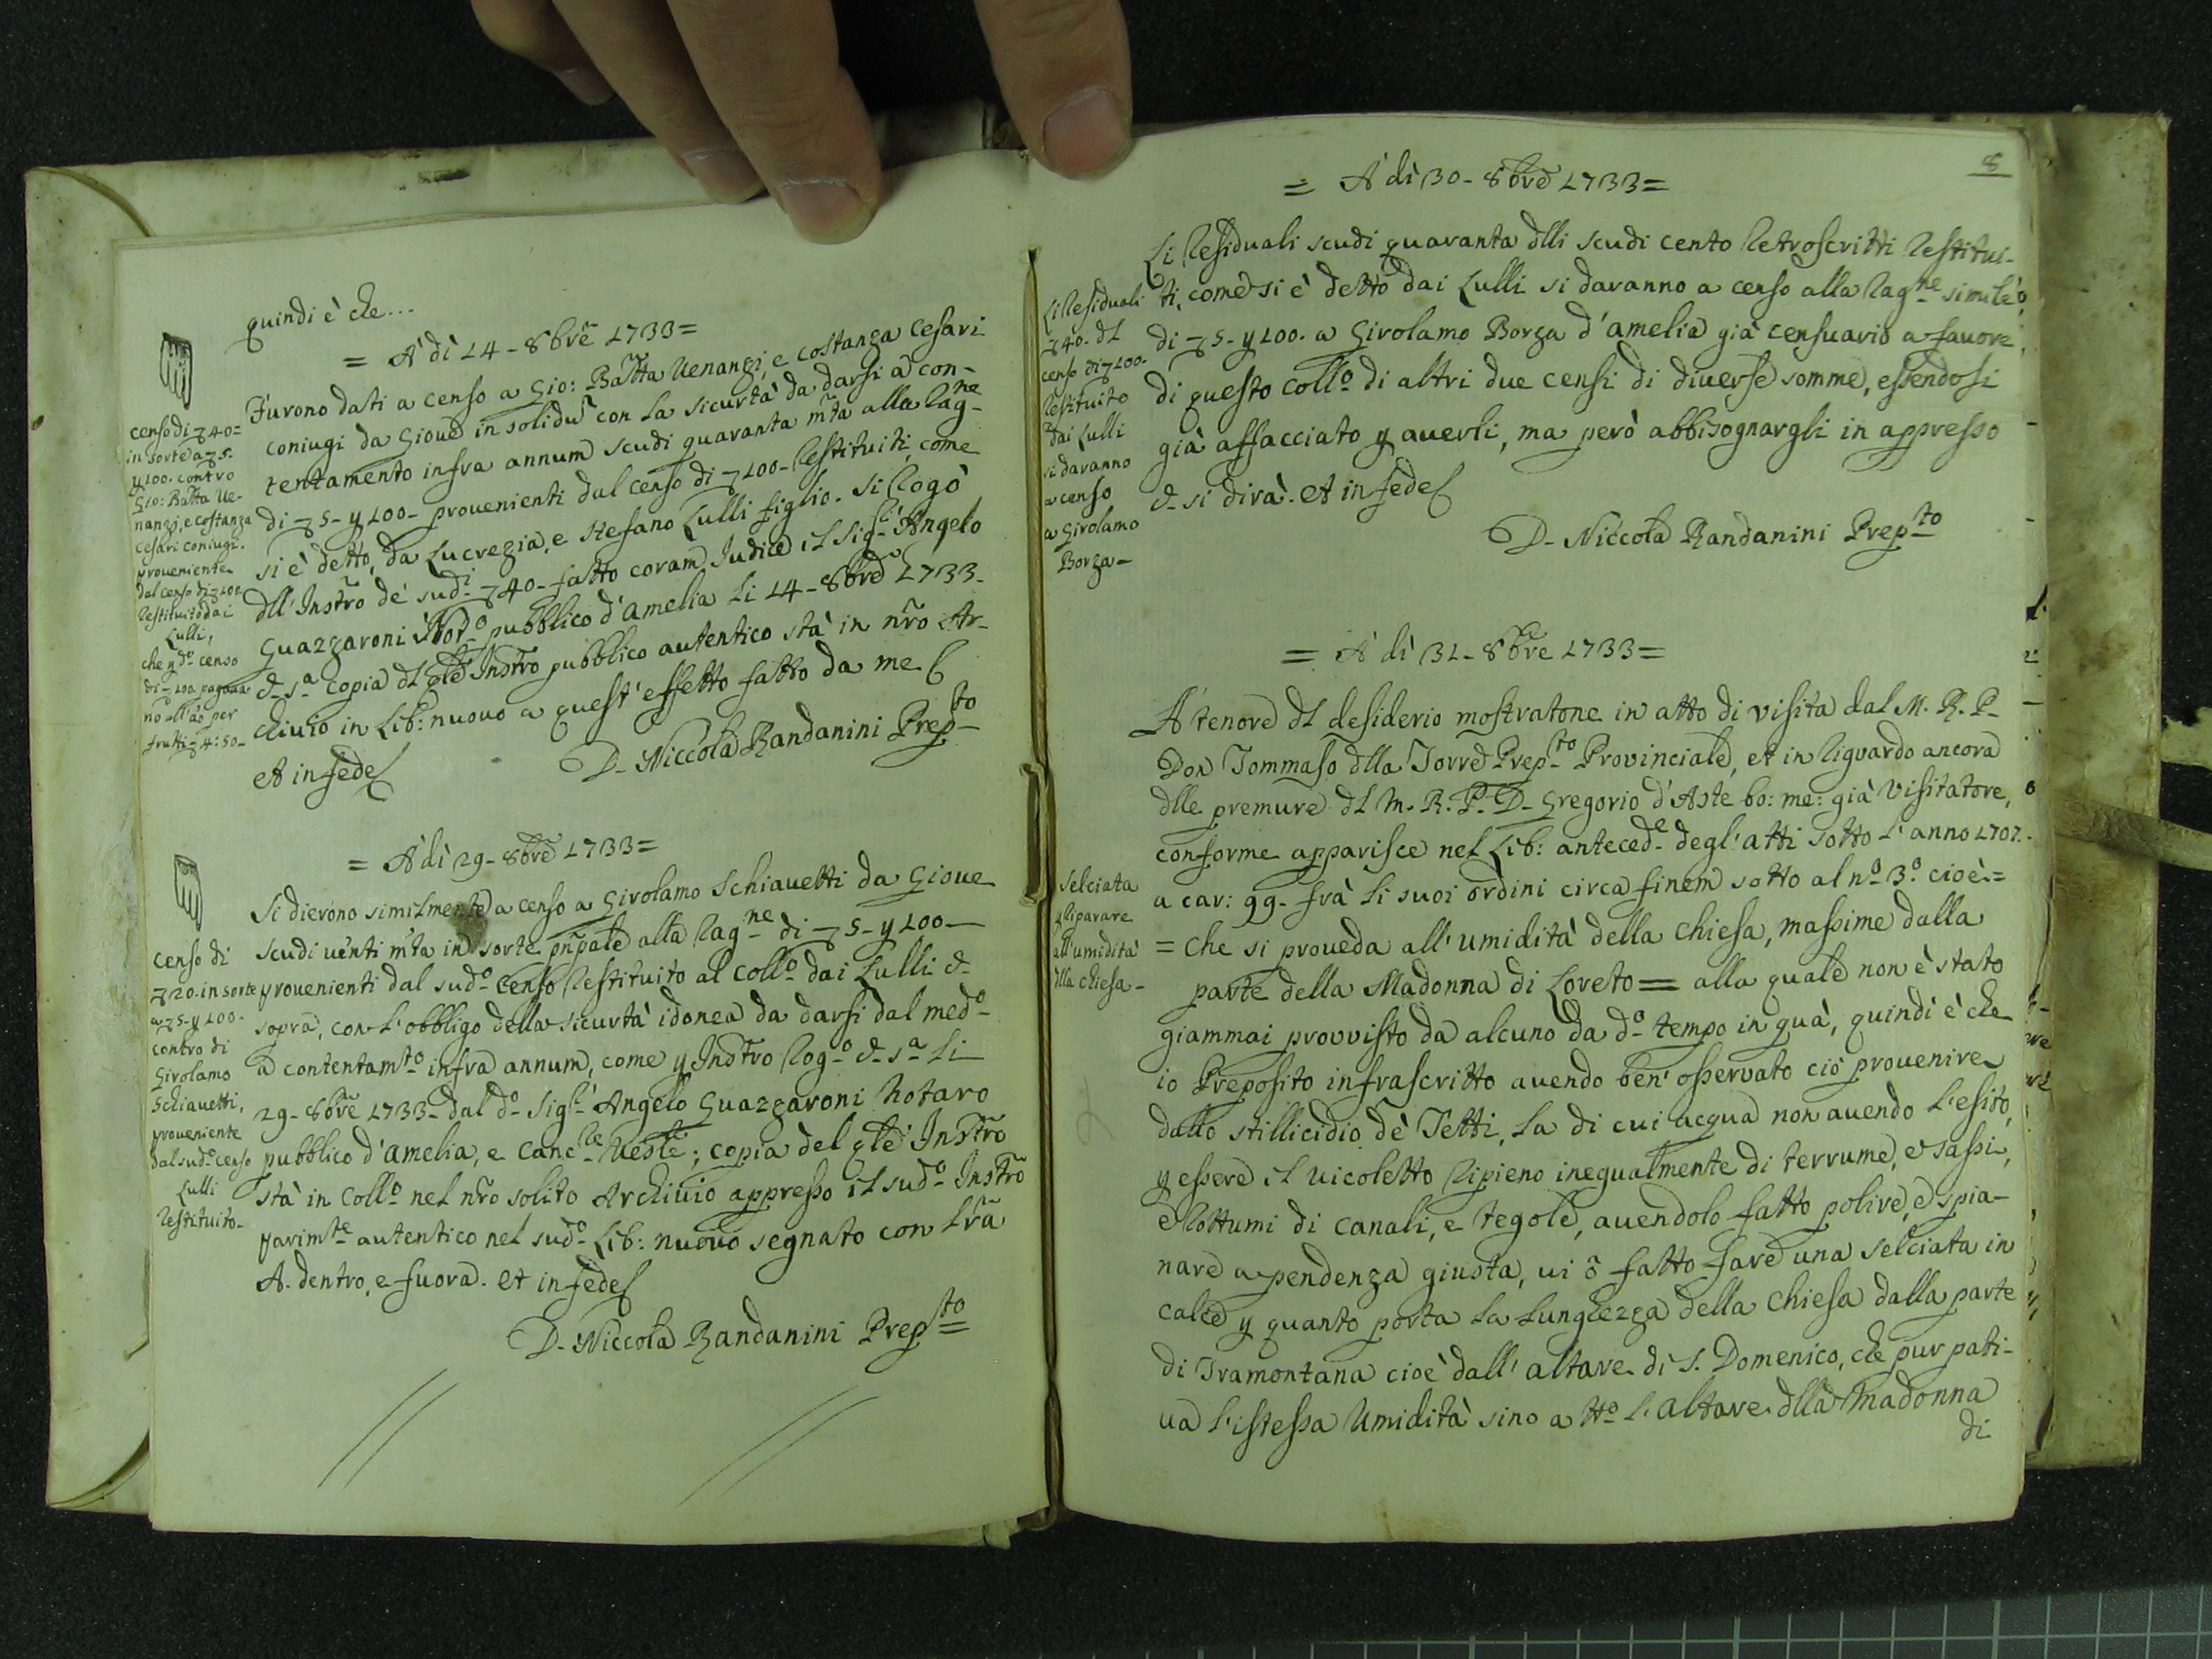 quindi è che...
= A' dì 14 - 8bre 1733 =
Furono dati a censo a Gio: Batta Venanzi, e Costanza Cesari
coniugi da Giove in solidum con la sicurtà da darsi a con-
tentamento infra annum scudi quaranta mta alla rag-ne
di ∇ 5 - p 100 - provenienti dal censo di ∇ 100 - restituiti, come
si è detto, da Lucrezia, e Stefano Lulli figlio. Si rogò
dll' Instro de' sudi ∇ 40 - fatto coram Iudice il Sigr Angelo
Guazzaroni Noto pubblico d'Amelia li 14 - 8bre 1733 -
e sa copia dl pnte Instro pubblico autentico stà in nro Ar-
chivio in Lib: nuovo a quest' effetto fatto da me
et in fede
D. Niccola Randanini Prepto
censo di ∇ 40 =
in sorte a ∇ 5.
p 100. contro
Gio: Batta Ve-
nanzi, e Costanza
Cesari coniugi.
proveniente
dal censo di ∇ 100
restituito dai
Lulli,
che p do censo
di ∇ 100 pagava
no all' ao per
frutti ∇ 4:50 -
= A' dì 29 - 8bre 1733 =
Si dierono similmente a censo a Girolamo Schiavetti da Giove
scudi venti mta in sorte pnpale alla rag-ne di ∇ 5 - p 100 -
provenienti dal sudo censo restituito al Collo dai Lulli de
sopra, con l'obbligo della sicurtà idonea da darsi dal medo
a contentamto infra annum, come p Instro rogo de sa li
29 - 8bre 1733 - dal do Sigr Angelo Guazzaroni Notaro
pubblico d'Amelia, e Cancre Vesle; copia del pnte Instro
stà in Collo nel nro solito Archivio appresso il sudo Instro
parimte autentico nel sudo Lib: nuovo segnato con lra
A. dentro, e fuora. et in fede
D. Niccola Randanini Prepto
censo di
∇ 20. in sorte
a ∇ 5 - p 100 -
contro di
Girolamo
Schiavetti,
proveniente
dal sudo censo
Lulli
restituito -
8
= A' dì 30 - 8bre 1733 =
Li residuali scudi quaranta dlli scudi cento retroscritti restitui-
ti, come si è detto dai Lulli si daranno a censo alla rag-ne simile,
di ∇ 5 - p 100. a Girolamo Borza d'Amelia già censuario a favore
di questo Collo di altri due censi di diverse somme, essendosi
già affacciato p averli, ma però abbisognargli in appresso
e si dirà. et in fede
D. Niccola Randanini Prepto
Li residuali
∇ 40. dl
censo di ∇ 100.
restituito
dai Lulli
si daranno
a censo
a Girolamo
Borza -
= A' dì 31 - 8bre 1733 =
A' tenore dl desiderio mostratone in atto di visita dal M. R. P.
Don Tommaso dlla Torre Prepto Provinciale, et in riguardo ancora
dlle premure dl M. R. P. D. Gregorio d'Aste bo: me: già Visitatore,
conforme apparisce nel Lib: anteced-e degl' atti sotto l' anno 1707.
a car: 99 - frà li suoi ordini circa finem sotto al no 3o cioè =
= Che si proveda all' umidità della Chiesa, massime dalla
parte della Madonna di Loreto = alla quale non è stato
giammai provvisto da alcuno da do tempo in quà, quindi è che
io Preposito infrascritto avendo ben' osservato ciò provenire
dallo stillicidio de' Tetti, la di cui acqua non avendo l' esito,
p essere il vicoletto ripieno inegualmente di terrume, e sassi,
e rottumi di canali, e tegole, avendolo fatto polire, e spia-
nare a pendenza giusta, vi ò fatto fare una selciata in
calce p quanto porta la lunghezza della Chiesa dalla parte
di Tramontana cioè dall' altare di S. Domenico, che pur pati-
va l' istessa umidità sino a tto l' altare dlla Madonna
di
Selciata
p riparare
all' umidità
dlla Chiesa -